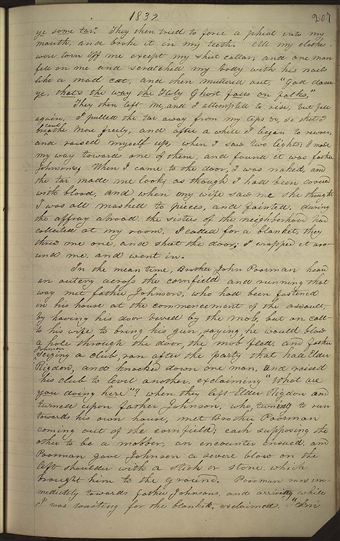 1832 207
ye some tar." They then tried to force a phial into my
mouth, and broke it in my teeth. All my clothes
were torn off me except my shirt collar; and one man
fell on me and scratched my body with his nails
like a mad cat, and then muttered out, "God damn
ye, that's the way the Holy Ghost falls on folks."
They then left me, and I attempted to rise, but fell
again; I pulled the tar away from my lips &c. so that I could
breathe more freely, and after a while I began to recover
and raised myself up, when I saw two lights; I made
my way towards one of them, and found it was father
Johnsons, When I came to the door, I was naked, and
the tar made me look as though I had been covered
with blood, and when my wife saw me she thought
I was all mashed to pieces, and fainted. During
the affray abroad the sisters of the neighborhood had
collected at my room. I called for a blanket, they
threw me one, and shut the door; I wrapped it aro-
und me and went in.
In the mean time, Brother John Poorman heard
an outcry across the cornfield, and running that
way met father Johnson, who had been fastened
in his house at the commencement of the assault,
by having his door barred by the mob, but on call-
ing his wife to bring his gun, saying, he would blow
a hole through the door, the mob fled, and father Johnson
seizing a club, ran after the party that had Elder
Rigdon, and knocked down one man, and raised
his club to level another, exclaiming "What are
you doing here"? when they left Elder Rigdon and
turned upon father Johnson, who, turning to run
towards his own house, met Brother Poorman
coming out of the cornfield; each supposing the
other to be a mobber, an encounter ensued, and
Poorman gave Johnson a severe blow on the
left shoulder with a stick or stone, which
brought him to the ground. Poorman ran im-
mediately towards father Johnsons, and arriving while
I was waiting for the blanket, exclaimed, "I'm